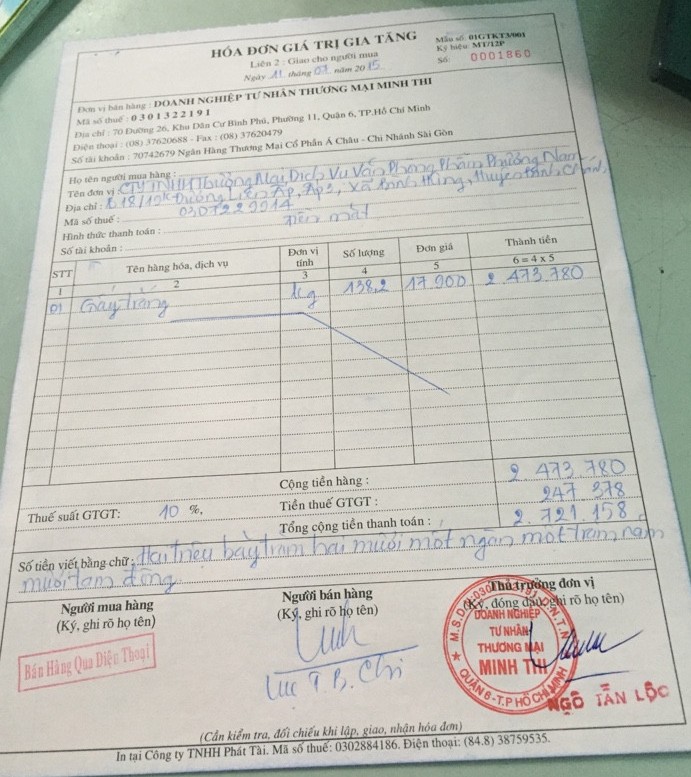 HÓA ĐƠN GIÁ TRỊ GIA TĂNG
Liên 2 : Giao cho người mua
Ngày 11 tháng 07 năm 2015
Mẫu số: 01GTKT3/001
Ký hiệu: MT/12P
Số: 0001860
Đơn vị bán hàng : DOANH NGHIỆP TƯ NHÂN THƯƠNG MẠI MINH THI
Mã số thuế : 0301322191
Địa chỉ : 70 Đường 26, Khu Dân Cư Bình Phú, Phường 11, Quận 6, TP.Hồ Chí Minh
Điện thoại : (08) 37620688 - Fax : (08) 37620479
Số tài khoản : 70742679 Ngân Hàng Thương Mại Cổ Phần Á Châu - Chi Nhánh Sài Gòn
Họ tên người mua hàng :
Tên đơn vị : CTy TNHH Thương Mại Dịch Vụ Văn Phòng Phẩm Phương Nam
Địa chỉ : B18/19K Đường Liên Ấp, Ấp 3, Xã Hưng, Huyện Bình Chánh,
Mã số thuế : 0307229914
Hình thức thanh toán : Tiền mặt
Số tài khoản :
STT Tên hàng hóa, dịch vụ Đơn vị tính Số lượng Đơn giá Thành tiền
1 2 3 4 5 6 = 4 x 5
01 Giấy trắng kg 138,2 17.900 2.473.780
Cộng tiền hàng : 2 473 780
Thuế suất GTGT: 10 %, Tiền thuế GTGT : 247 378
Tổng cộng tiền thanh toán : 2.721.158
Số tiền viết bằng chữ : Hai triệu bảy trăm hai mươi mốt ngàn một trăm năm
mươi tám đồng
Người mua hàng Người bán hàng Thủ trưởng đơn vị
(Ký, ghi rõ họ tên) (Ký, ghi rõ họ tên) (Ký, đóng dấu, ghi rõ họ tên)
Bán Hàng Qua Điện Thoại
Lục T.B. Chi
DOANH NGHIỆP
TƯ NHÂN
THƯƠNG MẠI
MINH THI
QUẬN 6 - T.P HỒ CHÍ MINH
NGÔ TẤN LỘC
(Cần kiểm tra, đối chiếu khi lập, giao, nhận hóa đơn)
In tại Công ty TNHH Phát Tài. Mã số thuế: 0302884186. Điện thoại: (84.8) 38759535.